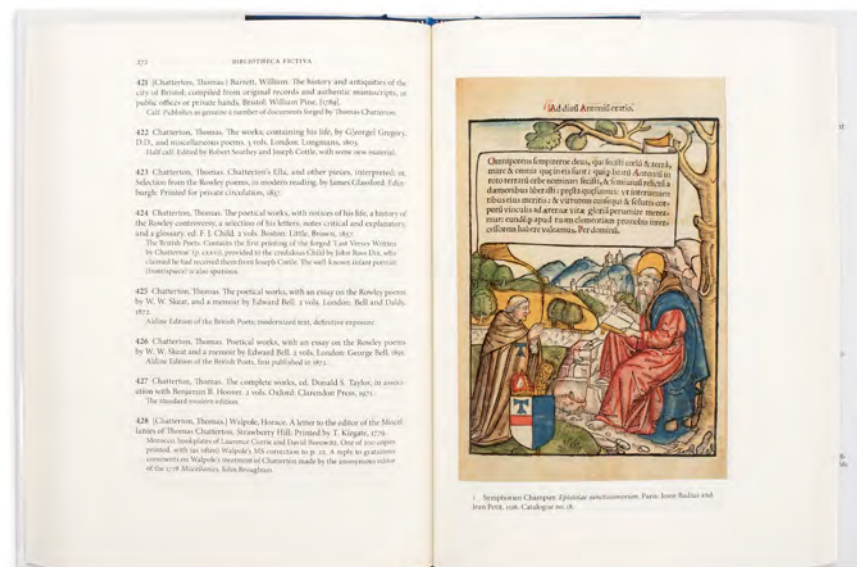 272 BIBLIOTHECA FICTIVA
421 [Chatterton, Thomas.] Barrett, William. The history and antiquities of the
city of Bristol; compiled from original records and authentic manuscripts, in
public offices or private hands. Bristol: William Pine, [1789].
Calf. Publishes as genuine a number of documents forged by Thomas Chatterton.
422 Chatterton, Thomas. The works; containing his life, by G[eorge] Gregory,
D.D., and miscellaneous poems. 3 vols. London: Longmans, 1803.
Half calf. Edited by Robert Southey and Joseph Cottle, with some new material.
423 Chatterton, Thomas. Chatterton's Ella, and other pieces, interpreted; or,
Selection from the Rowley poems, in modern reading, by James Glassford. Edin-
burgh: Printed for private circulation, 1837.
424 Chatterton, Thomas. The poetical works, with notices of his life, a history of
the Rowley controversy, a selection of his letters, notes critical and explanatory,
and a glossary, ed. F. J. Child. 2 vols. Boston: Little, Brown, 1857.
The British Poets. Contains the first printing of the forged 'Last Verses Written
by Chatterton' (p. cxxvi), provided to the credulous Child by John Ross Dix, who
claimed he had received them from Joseph Cottle. The well-known infant portrait
(frontispiece) is also spurious.
425 Chatterton, Thomas. The poetical works, with an essay on the Rowley poems
by W. W. Skeat, and a memoir by Edward Bell. 2 vols. London: Bell and Daldy,
1872.
Aldine Edition of the British Poets, modernized text, definitive exposure.
426 Chatterton, Thomas. Poetical works, with an essay on the Rowley poems
by W. W. Skeat and a memoir by Edward Bell. 2 vols. London: George Bell, 1891.
Aldine Edition of the British Poets, first published in 1872.
427 Chatterton, Thomas. The complete works, ed. Donald S. Taylor, in associ-
ation with Benjamin B. Hoover. 2 vols. Oxford: Clarendon Press, 1971.
The standard modern edition.
428 [Chatterton, Thomas.] Walpole, Horace. A letter to the editor of the Miscel-
lanies of Thomas Chatterton. Strawberry Hill: Printed by T. Kirgate, 1779.
Morocco, bookplates of Laurence Currie and David Borowitz. One of 200 copies
printed, with (as often) Walpole's MS correction to p. 22. A reply to gratuitous
comments on Walpole's treatment of Chatterton made by the anonymous editor
of the 1778 Miscellanies, John Broughton.
Ad diuũ Antoniũ oratio.
Omnipotens sempiterne deus, qui fecisti cœlũ & terrã,
mare & omnia quę in eis sunt: quiq; beatũ Antoniũ in
toto terrarũ orbe nominari fecisti,
1 Symphorien Champier. Epistolae sanctissimorum. Paris: Josse Badius and
Jean Petit, 1516. Catalogue no. 18.